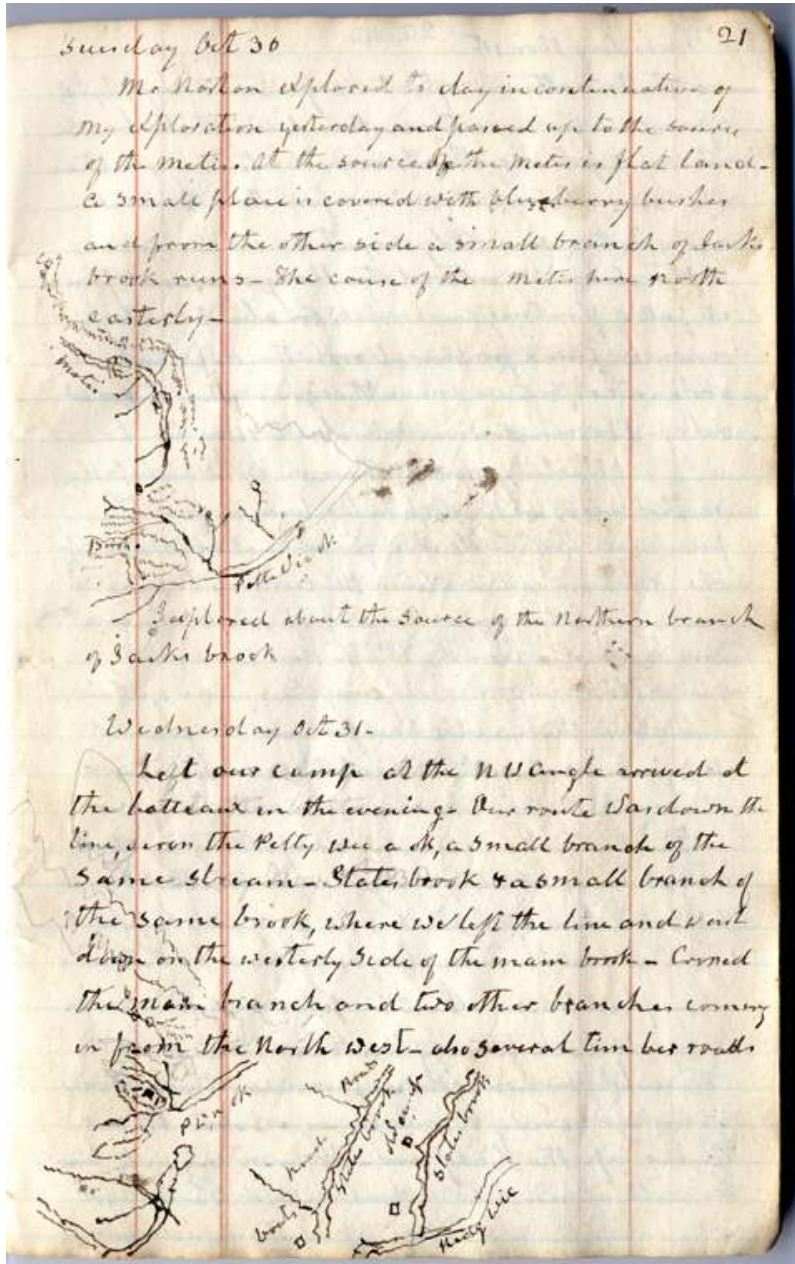 21
Tuesday Oct 30
Mr Norton explored to day in continuation of
my exploration yesterday and passed up to the source
of the Metis. At the source of the Metis is flat land -
a small place is covered with blueberry bushes
and from the other side a small branch of Jacks
brook runs - The course of the Metis here North
easterly -
Metis
I explored about the source of the Northern branch
of Jacks brook
Wednesday Oct 31 -
Left our camp at the NW angle arrived at
the batteaux in the evening - Our route was down the
line, the Petty Wee a ok, a small branch of the
same stream - States brook & a small branch of
the same brook, where we left the line and went
down on the westerly side of the main brook - Crossed
the main branch and two other branches coming
in from the North West - also several timber roads
Road
Road
States brook
States brook